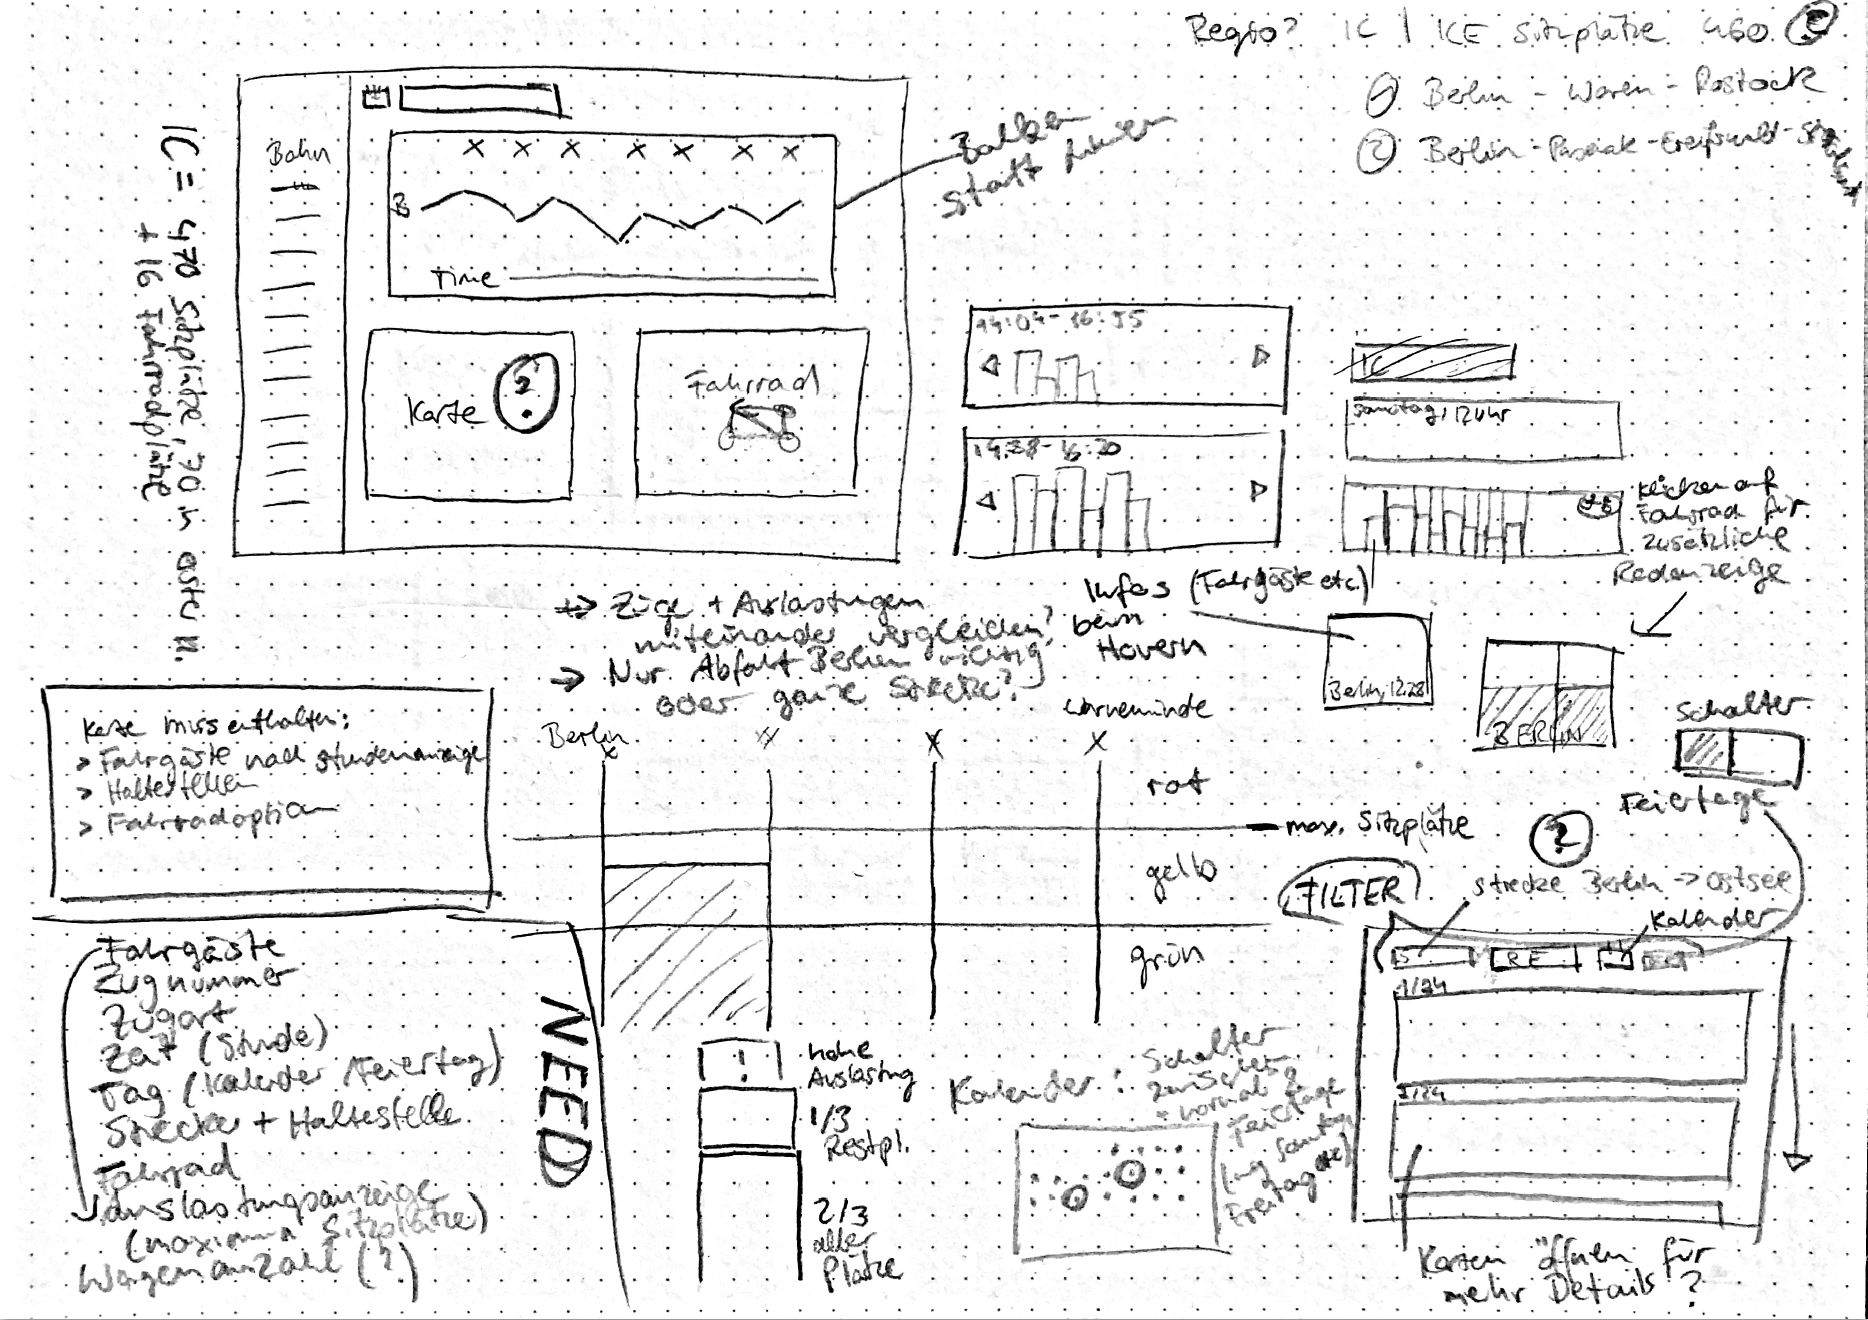 Regio? IC | ICE Sitzplätze 460 ?
① Berlin - Waren - Rostock
② Berlin - Pasewalk - Greifswald -
IC = 470 Sitzplätze, 70 in
+ 16 Fahrradplätze
Bahn
B
Time
Balken
statt Linien
Karte ?
Fahrrad
14:04 - 16:55
14:38 - 16:20
IC
Samstag, 12 Uhr
Klicken auf
Fahrrad für
zusätzliche
Radanzeige
Infos (Fahrgäste etc.)
beim
Hovern
Berlin, 12.28
BERLIN
Schalter
Feiertage
→ Züge + Auslastungen
miteinander vergleichen?
→ Nur Abfahrt Berlin wichtig
oder ganze Strecke?
Karte muss enthalten:
> Fahrgäste nach Stundenanzeige
> Haltestellen
> Fahrradoption
Berlin
Warnemünde
x x x x
rot
max. Sitzplätze
gelb
grün
?
FILTER
Strecke Berlin -> Ostsee
Kalender
RE
1/24
2/24
Karten öffnen für
mehr Details?
Fahrgäste
Zugnummer
Zugart
Zeit (Stunde)
Tag (Kalender / Feiertag)
Strecke + Haltestelle
Fahrrad
Auslastungsanzeige
(maximum Sitzplätze)
Wagenanzahl (?)
NEED
!
hohe
Auslastung
1/3
Restpl.
2/3
aller
Plätze
Kalender:
Schalter
zwischen
normal &
Feiertage
Sonntag,
Freitag etc)